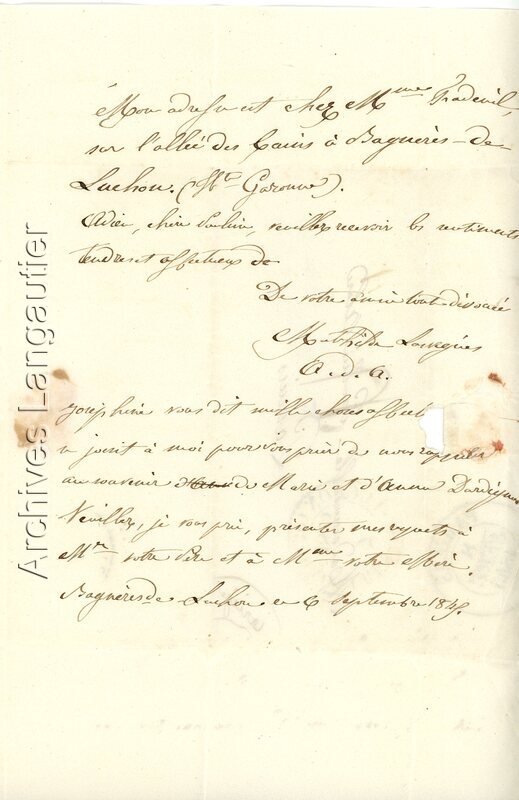 Mon adresse est chez M^me Pradeuil,
sur l'allée des bains à Bagnères-de
Luchon. (H^te Garonne).
Adieu, chère Pauline, veuillez recevoir les sentiments
tendres et affectueux de
De votre amie tout dévouée
Mathilde
A. d. A.
Joséphine vous dit mille choses affect
se joint à moi pour vous prier de nous rappeler
au souvenir de Marie et d'Anna
Veuillez, je vous prie, présenter mes respects à
M^r votre Père et à M^me votre Mère.
Bagnères de Luchon ce 6 Septembre 1845.
Archives Langautier